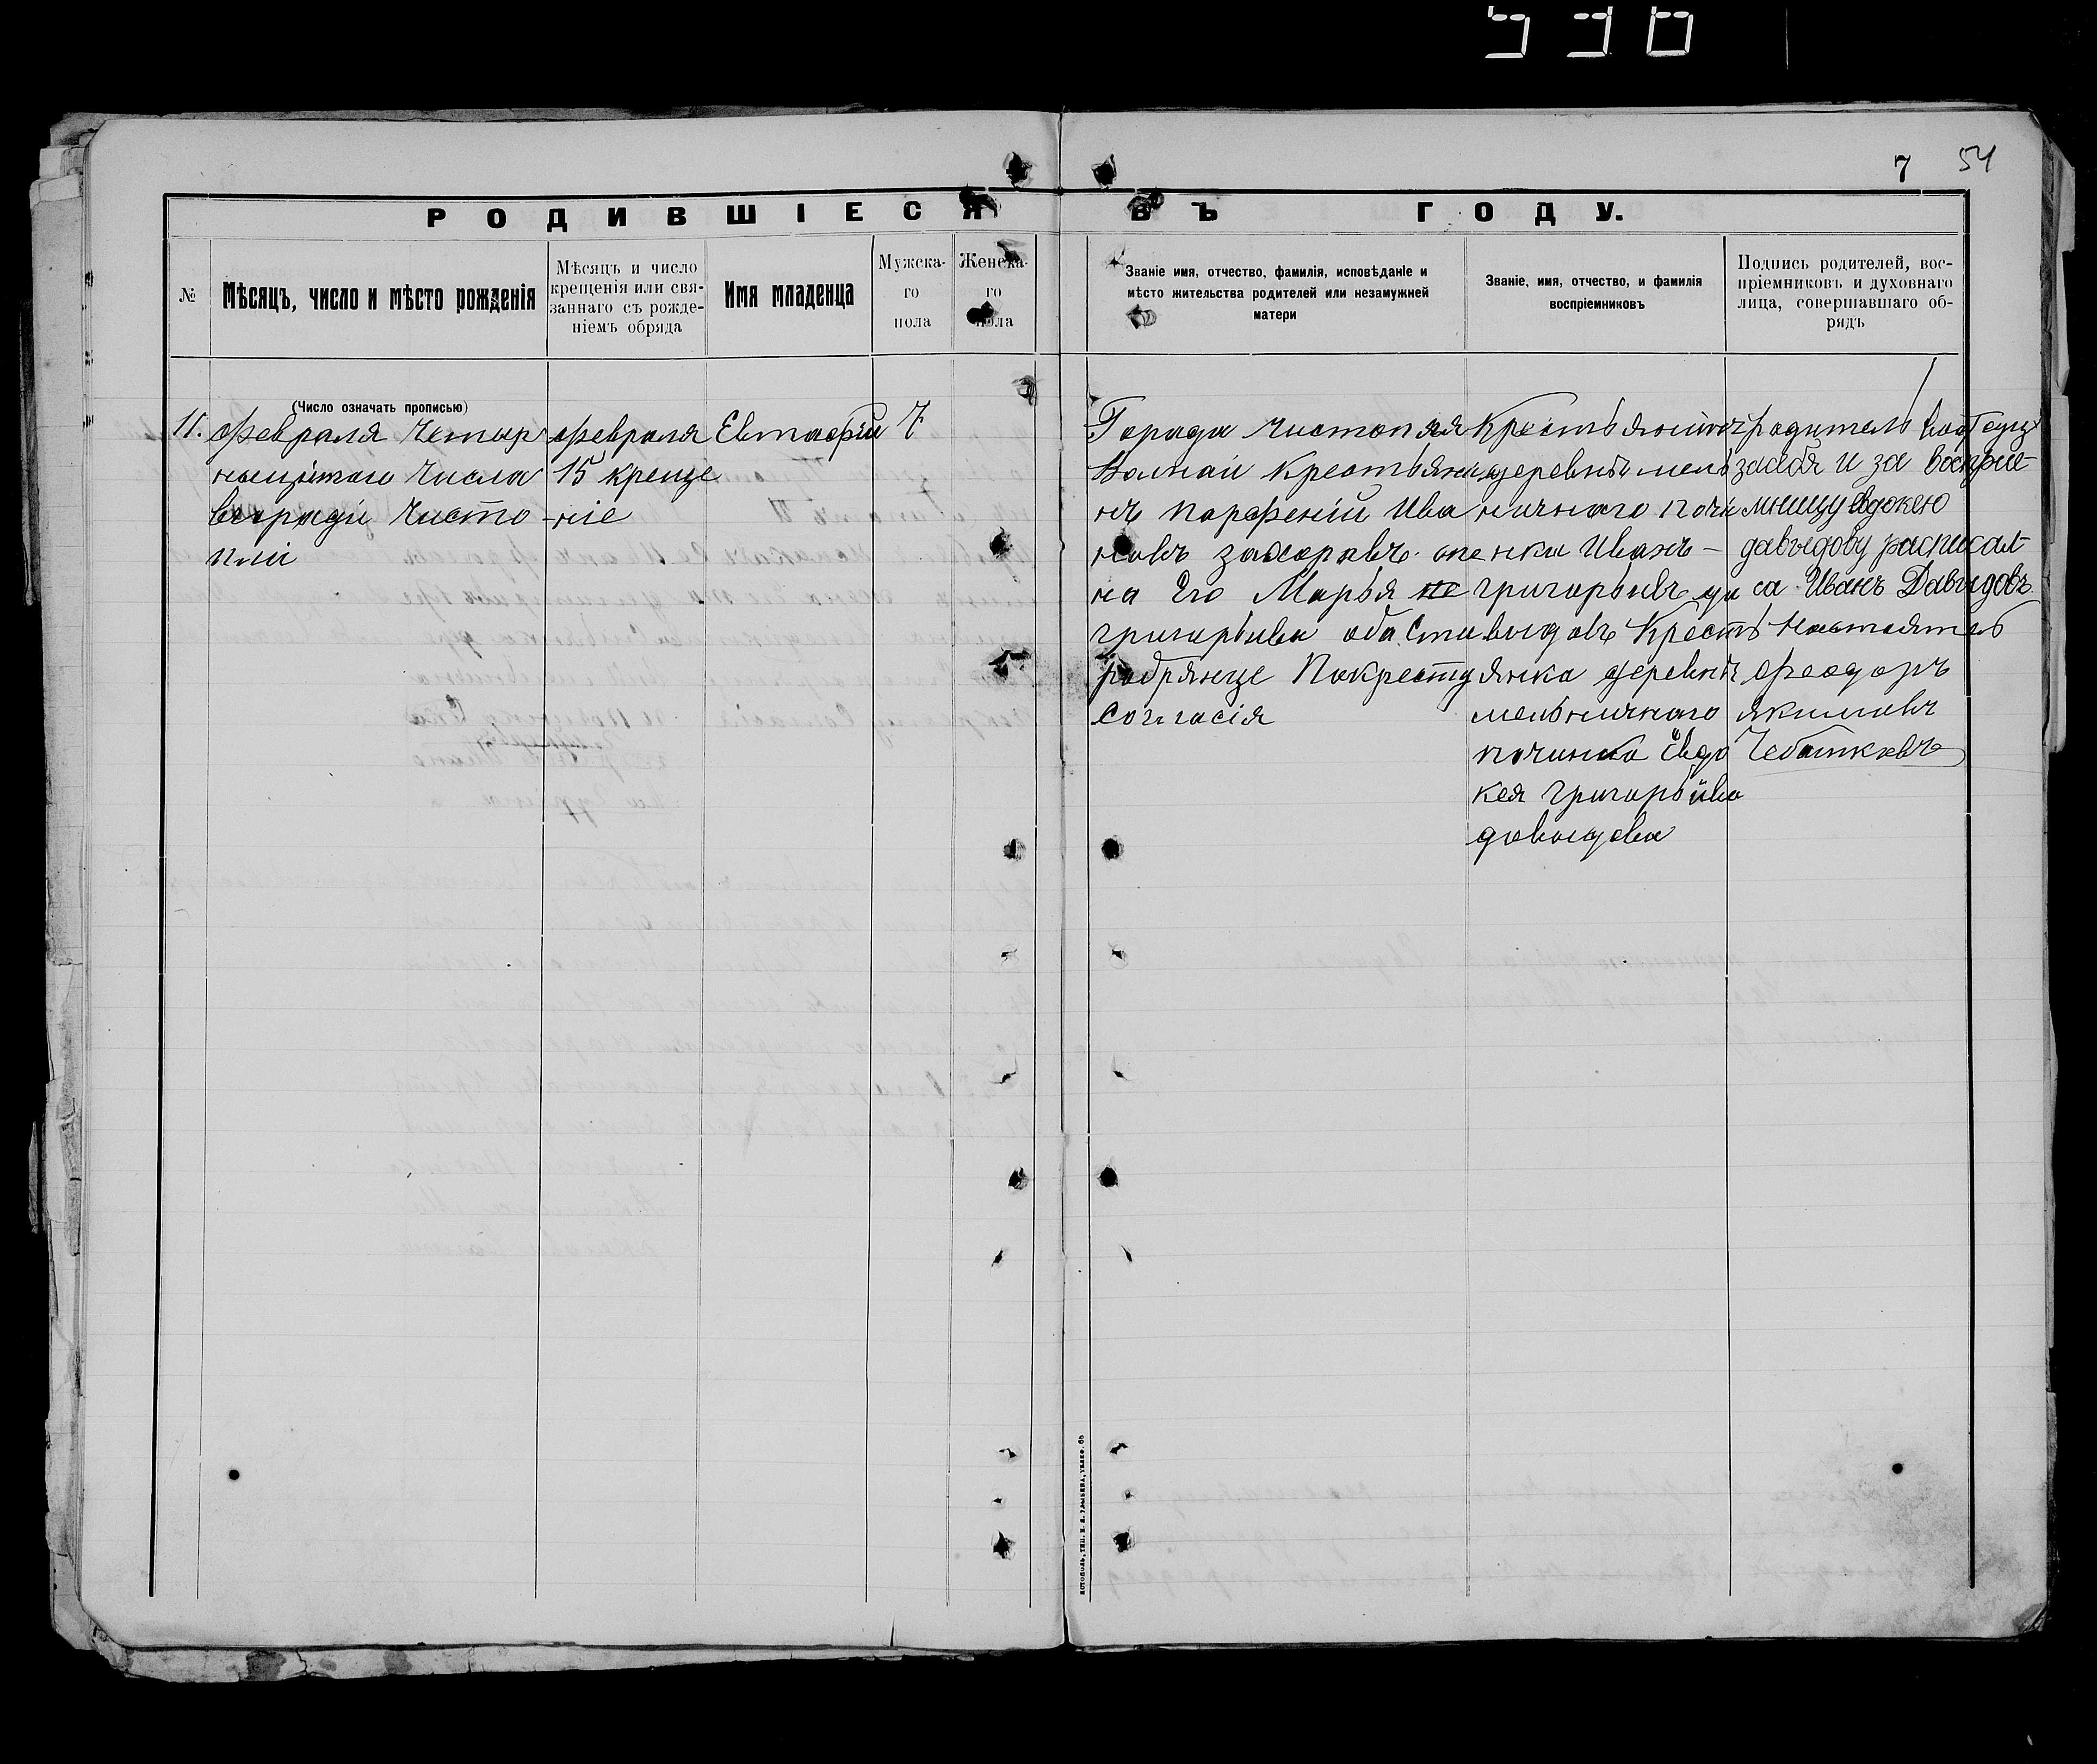 7 54
РОДИВШІЕСЯ ВЪ ГОДУ.
№
Мѣсяцъ, число и мѣсто рожденія
Мѣсяцъ и число
крещенія или свя-
заннаго съ рожде-
ніемъ обряда
Имя младенца
Мужска-
го
пола
Женска-
го
пола
Званіе имя, отчество, фамилія, исповѣданіе и
мѣсто жительства родителей или незамужней
матери
Званіе, имя, отчество, и фамилія
воспріемниковъ
Подпись родителей, вос-
пріемниковъ и духовнаго
лица, совершавшаго об-
рядъ
(Число означать прописью)
11.
февраля четыр
нацатаго числа
вгради чисто
пли
февраля
15 креще
-ніе
Евтафiи
7
Города чистополя
крестьяни
нъ парфеній Ива
новъ захоровъ. же
на Его Марья
григорьива оба Ста
робрянце Покресту
Согласія
Крестьянинъ
деревни мель
ничнаго почи
нки Иванъ –
григорьивъ да
выдовъ Кресть
янка деревни
мельничнаго
починка Евдо
кея григорьива
довыдова
родитель
засебя и за воспрiе-
мницу Евдокею
давыдову расписал-
са Иванъ Давыдовъ
Настоятель
феодоръ
якимовъ
Чебатковъ